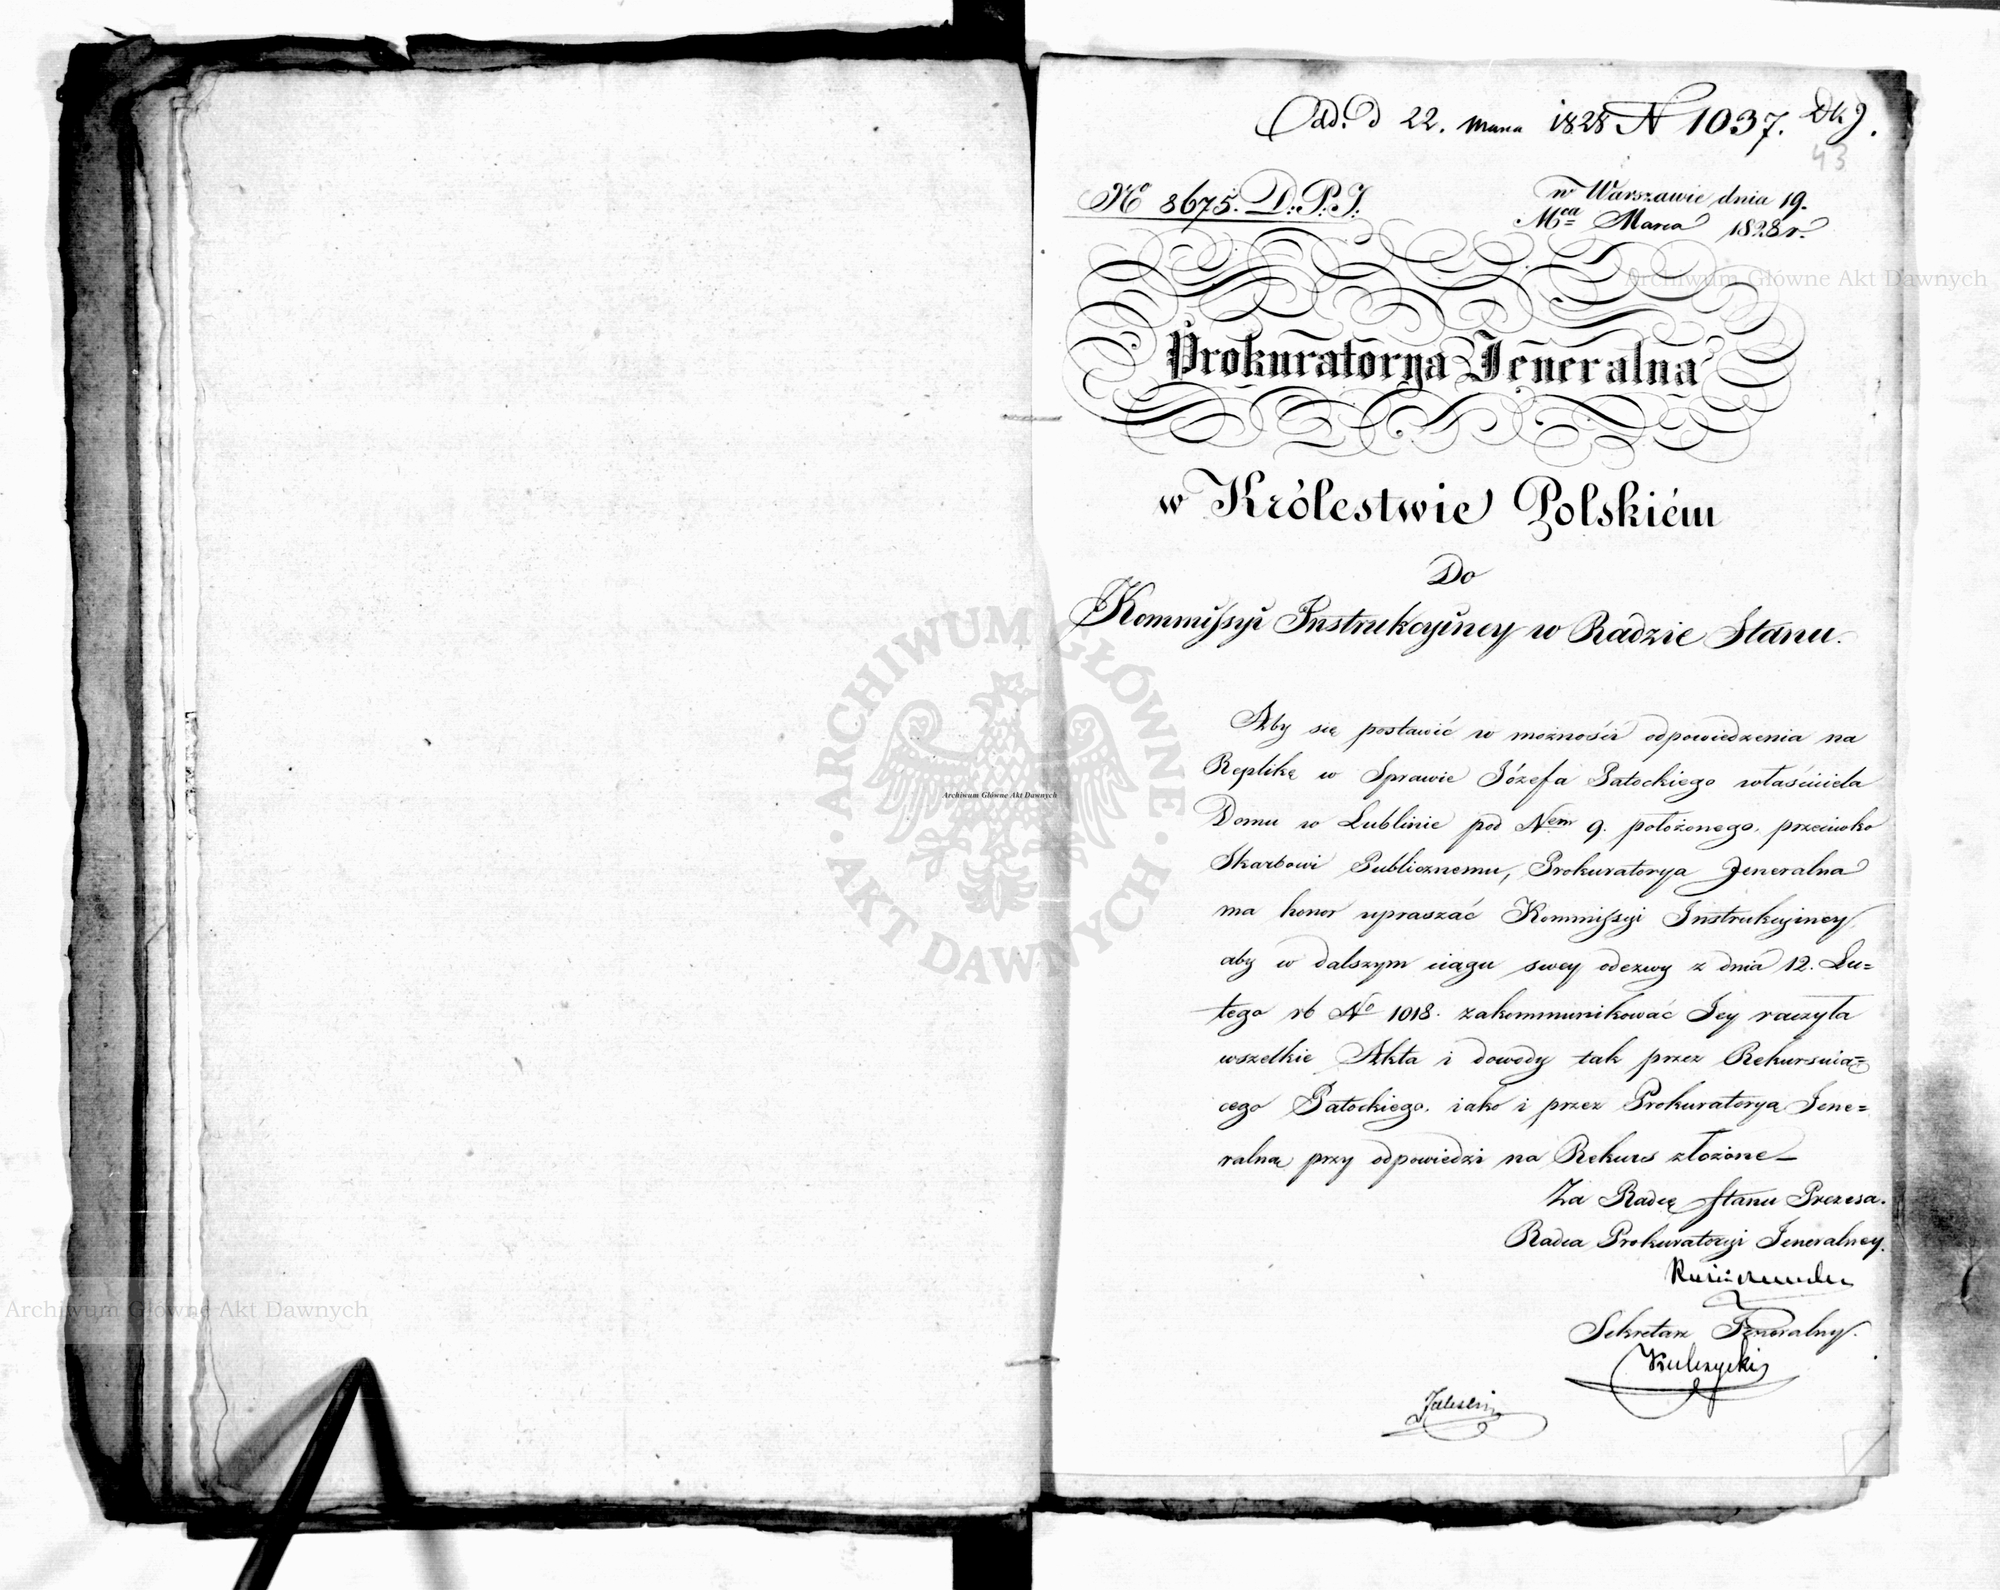 Odd. d 22. Marca 1828 N 1037. DKJ.
43
No 8675. D.P.J.
w Warszawie dnia 19.
Mca Marca 1828 r.
Prokuratorya Jeneralna
w Królestwie Polskiém
Do
Kommissyi Instrukcyiney w Radzie Stanu.
Aby się postawić w możności odpowiedzenia na
Replikę w Sprawie Józefa Patockiego właściciela
Domu w Lublinie pod Nem 9. położonego, przeciwko
Skarbowi Publicznemu, Prokuratorya Jeneralna
ma honor upraszać Kommissyi Instrukcyiney,
aby w dalszym ciągu swey odezwy z dnia 12. Lu=
tego rb No 1018. zakommunikować Jey raczyła
wszelkie Akta i dowody tak przez Rekursuią=
cego Patockiego, iako i przez Prokuratoryą Jene=
ralną przy odpowiedzi na Rekurs złożone
Za Radcę Stanu Prezesa.
Radca Prokuratoryi Jeneralney.
Sekretarz Jeneralny.
Kulczycki
Archiwum Główne Akt Dawnych
Archiwum Główne Akt Dawnych
Archiwum Główne Akt Dawnych
ARCHIWUM GŁÓWNE
AKT DAWNYCH